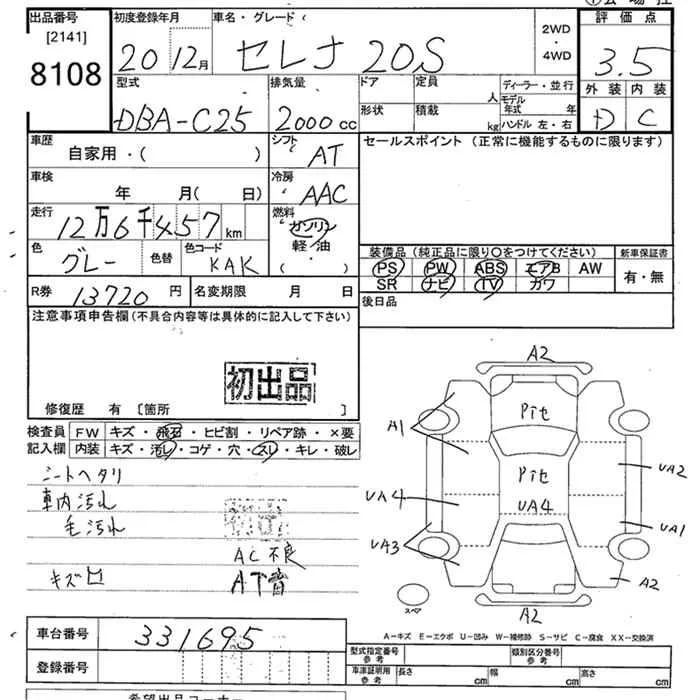 出品番号 初度登録年月 車名・グレード 2WD・4WD 評価点
[2141] 20 12月 セレナ 20S 3.5
8108 外装 内装
型式 排気量 ドア 定員 人 ディーラー・並行 D C
DBA-C25 2000cc 形状 積載 kg モデル年式 年 ハンドル 左・右
車歴 シフト セールスポイント (正常に機能するものに限ります)
自家用・( ) AT
車検 冷房
年 月( 日) AAC
走行 燃料
12万6千457km ガソリン
色 色替 色コード 軽・油
グレー KAK ( )
装備品 (純正品に限り○をつけてください) 新車保証書
PS PW ABS エアB AW 有・無
SR ナビ TV カワ
R券 13720円 名変期限 月 日 後日品
注意事項申告欄(不具合内容等は具体的に記入して下さい)
初出品
修復歴 有 [箇所 ]
検査員 FW キズ・飛石・ヒビ割・リペア跡・×要
記入欄 内装 キズ・汚レ・コゲ・穴・スレ・キレ・破レ
シートヘタリ
車内汚れ
毛汚れ
AC不良
キズ
A2
A1 Pit
Pit UA2
UA4 UA4
UA3 UA1
A2
スペア A2
A-キズ E-エクボ U-凹み W-補修跡 S-サビ C-腐食 XX-交換済
車台番号 331695
登録番号
型式指定番号 参考 類別区分番号 参考
車庫証明用 参考 長さ cm 幅 cm 高さ cm
希望出品コーナー